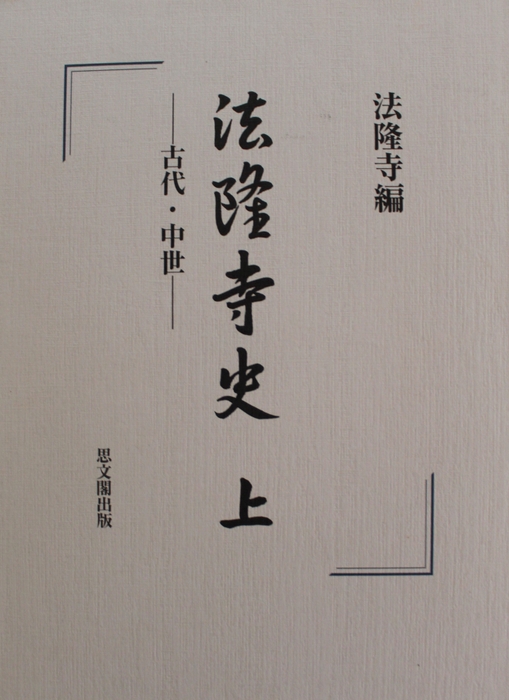 法隆寺編
法隆寺史 上
――古代・中世――
思文閣出版